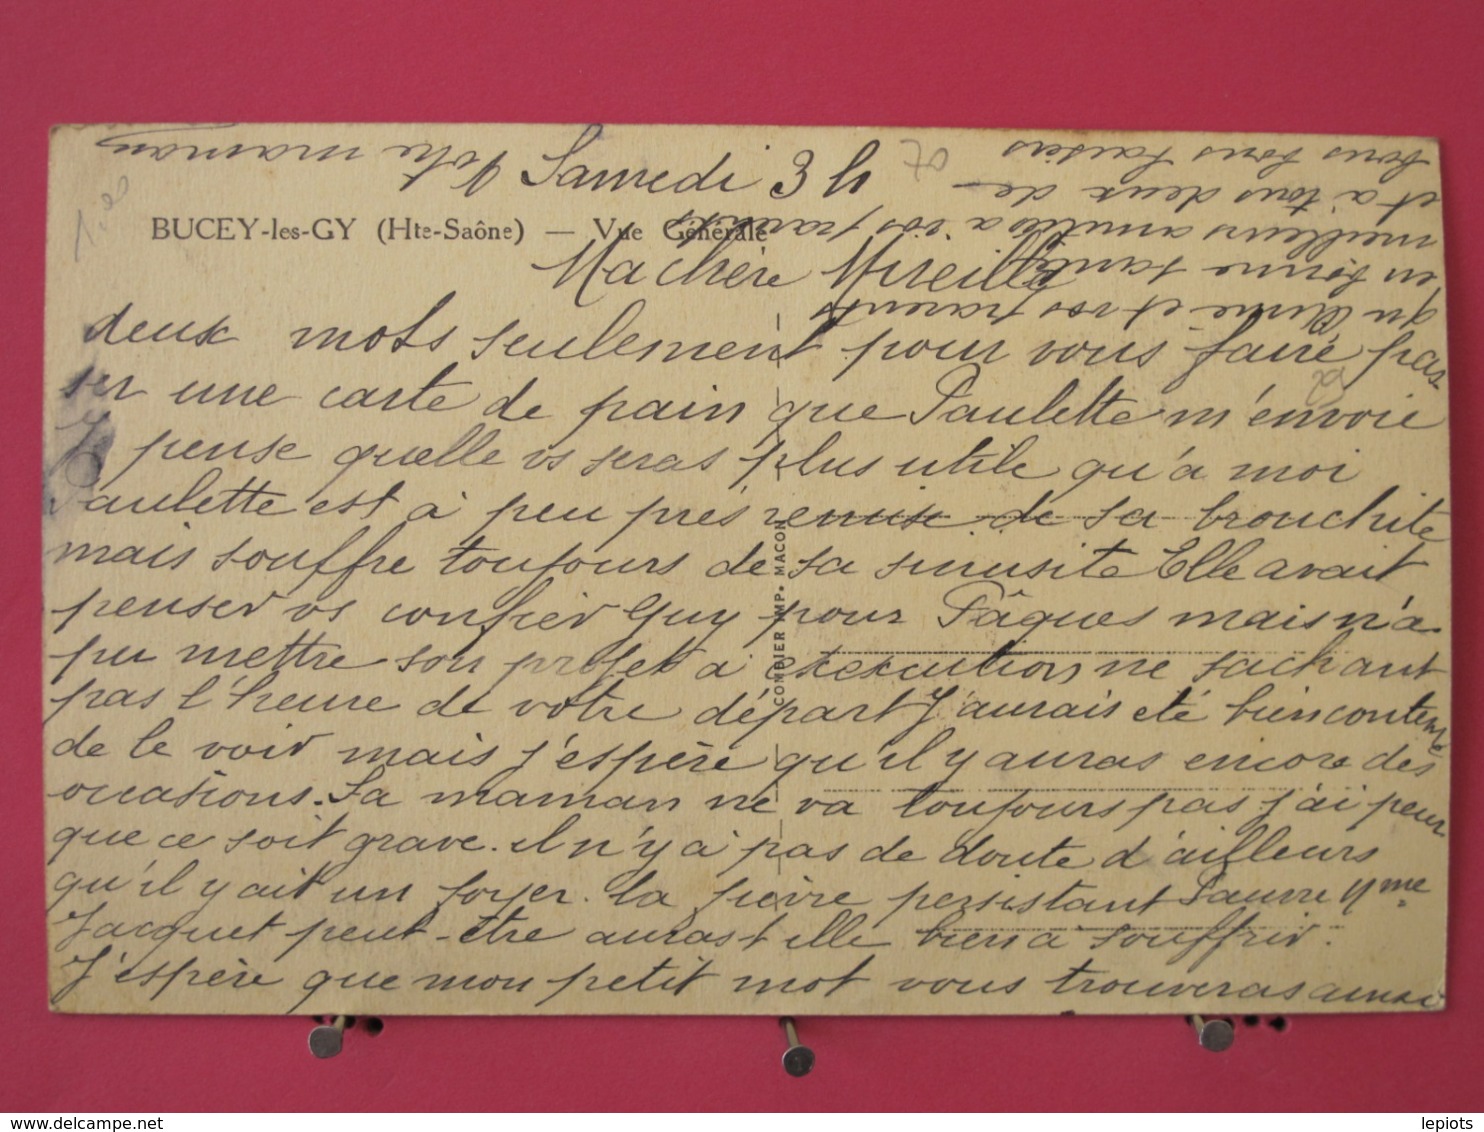 Samedi 3 h
BUCEY-les-GY (Hte-Saône) — Vue Générale
Ma chère Mireille
deux mots seulement pour vous faire pas
ser une carte de pain que Paulette m'envoie
Je pense quelle vs seras plus utile qu'a moi
Paulette est à peu près remise de sa bronchite
mais souffre toujours de sa sinusite Elle avait
penser vs confier Guy pour Pâques mais n'a
pu mettre son projet a exexcution ne sachant
pas l'heure de votre départ J'aurais été bien contente
de le voir mais j'espère qu'il y auras encore des
occasions. Sa maman ne va toujours pas j'ai peur
que ce soit grave. il n'y a pas de doute d'ailleurs
qu'il y ait un foyer. la fièvre persistant Pauvre Mme
Jacquet peut-être auras t elle bien a souffrir.
J'espère que mon petit mot vous trouveras ainsi
qu'Annie et vos parents
en bonne santé
meilleurs amitiés a vos parents
et a tous deux de
bons bons baisers
Votre maman
COMBIER IMP. MACON
delcampe.net
lepiots